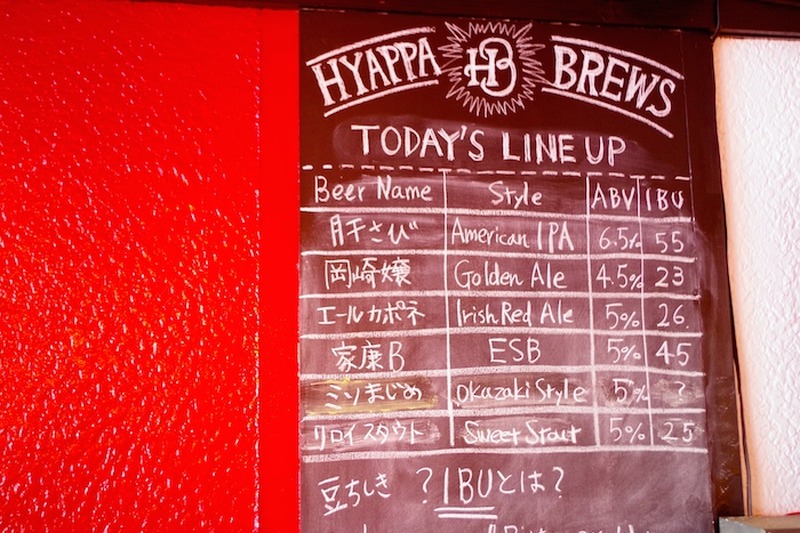 HYAPPA HB BREWS
TODAY'S LINE UP
Beer Name Style ABV IBU
肝さび American IPA 6.5% 55
岡崎嬢 Golden Ale 4.5% 23
エールカポネ Irish Red Ale 5% 26.
家康B ESB 5% 45
ミソまじめ Okazaki Style 5% ?
クロイスタウト Sweet Stout 5% 25
豆ちしき ?IBUとは?